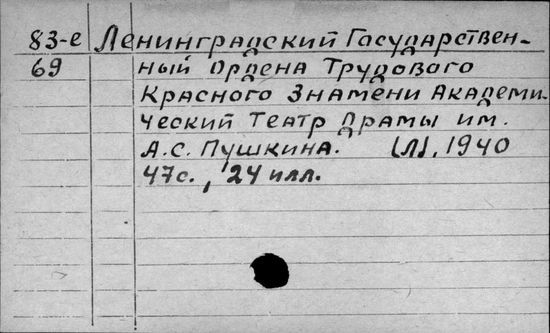 83-е Ленинградский Государствен-
69 ный Ордена Трудового
Красного Знамени Академи-
ческий Театр Драмы им.
А.С. Пушкина. (Л), 1940
47с., 24 илл.